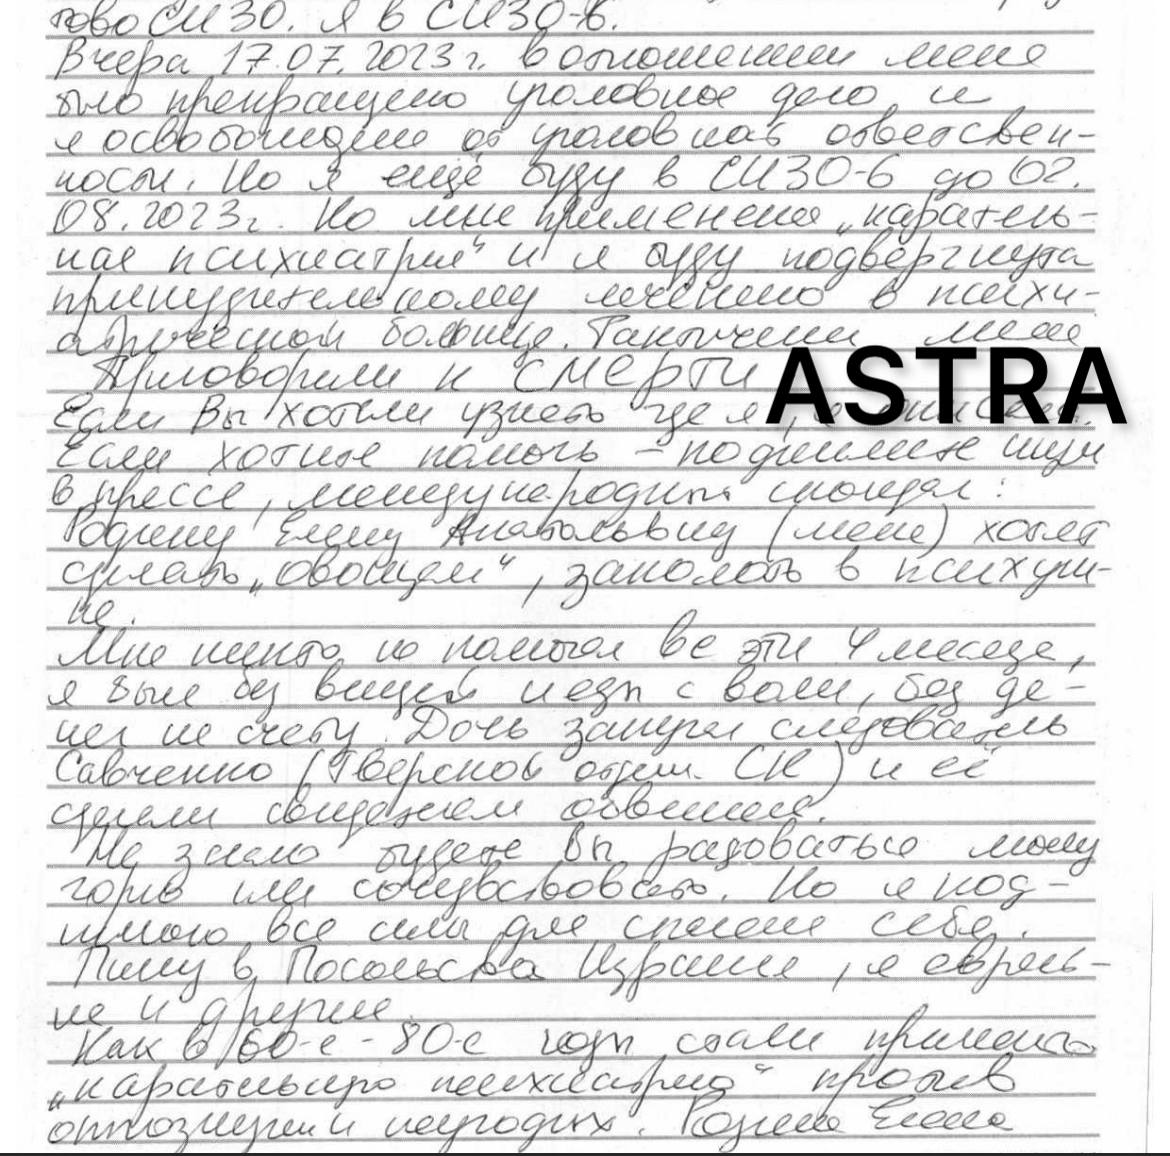 тово СИЗО. Я в СИЗО-6.
Вчера 17.07.2023г. в отношении меня
было прекращено уголовное дело и
я освобождена от уголовной ответствен-
ности. Но я ещё буду в СИЗО-6 до 02.
08.2023г. Ко мне применена „каратель-
ная психиатрия" и я буду подвергнута
принудительному лечению в психи-
атрической больнице. Фактически меня
Приговорили к СМЕРТИ
ASTRA
Если Вы хотели узнать где я,
Если хотите помочь – поднимите шум
в прессе, международный скандал:
Родину Елену Анатольевну (меня) хотят
сделать „овощем", заколоть в психуш-
ке.
Мне никто не помогал все эти 4 месяца,
я была без вещей и еды с воли, без де-
нег на счету. Дочь запугал следователь
Савченко (Тверской отдел СК) и её
сделали свидетелем обвинения.
Не знаю будете Вы радоваться моему
горю или сочувствовать. Но я под-
нимаю все силы для спасения себя.
Пишу в Посольства Израиля, я еврей-
ка и другие.
Как в 60-е - 80-е годы стали применять
„карательную психиатрию" против
оппозиции и неугодных. Родина Елена